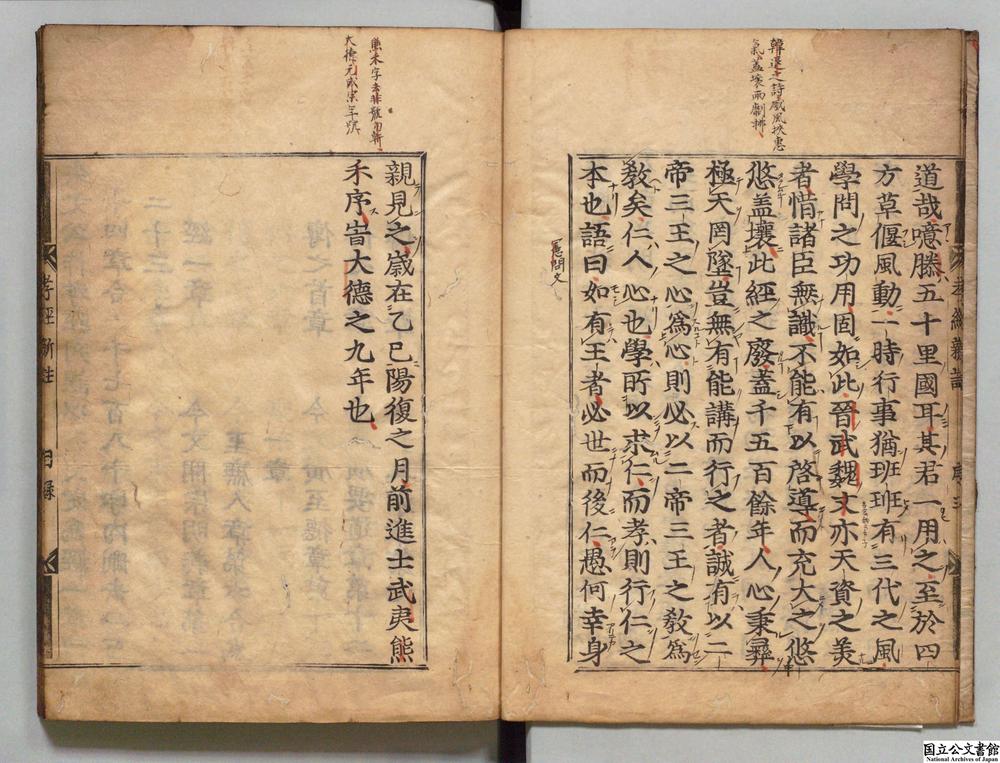 道哉噫滕五十里國耳其君一用之至於四
方草偃風動一時行事猶班班有三代之風
學問之功用固如此晉武魏文亦天資之美
者惜諸臣無識不能有以啓導而充大之悠
悠盖壤此經之廢盖千五百餘年人心秉彛
極天罔墜豈無有能講而行之者誠有以二
帝三王之心爲心則必以二帝三王之敎爲
敎矣仁人心也學所以求仁而孝則行仁之
本也語曰如有王者必世而後仁愚何幸身
憲問文
親見之嵗在乙巳陽復之月前進士武夷熊
禾序旹大德之九年也
孝經
目録
国立公文書館
National Archives of Japan